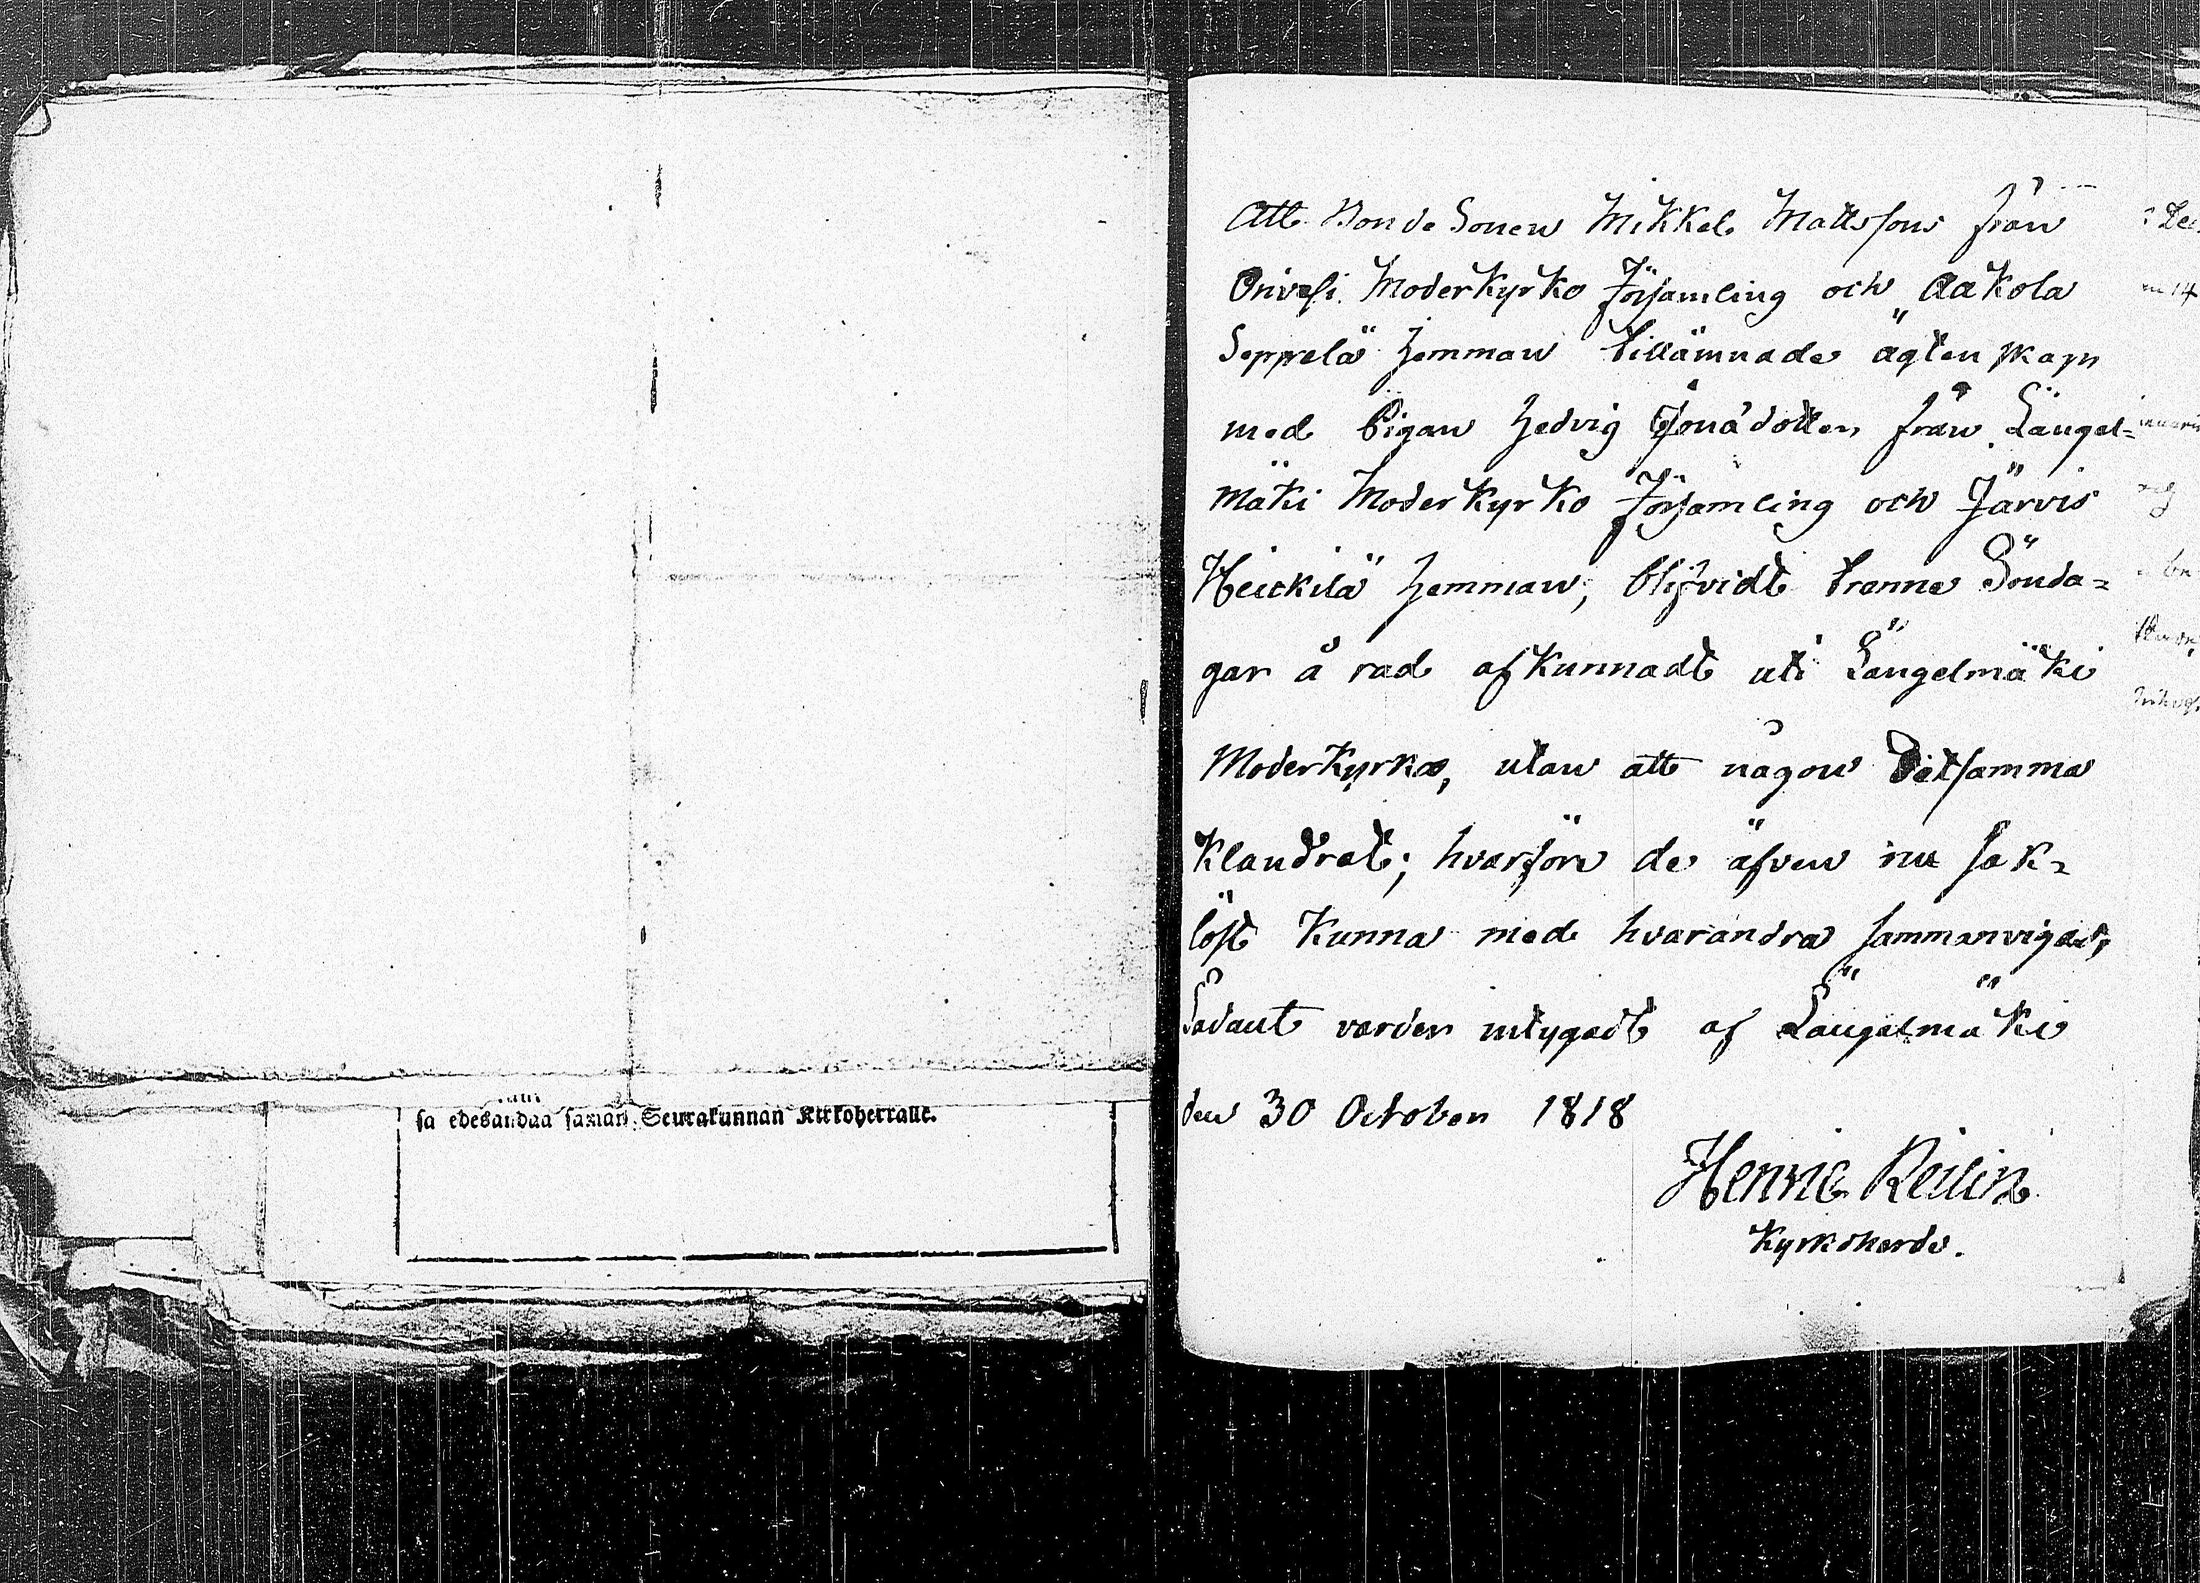 sa edesandaa saman Seurakunnan Kirkoherralle.
Att Bonde Sonen Mikkel Mattsson från
Orivesi Moderkyrko Församling och Aakola
Seppelä hemman tillämnade ägtenskap
med Pigan Hedvig Jonädotter från Längel-
mäki Moderkyrko Församling och Järvis
Heickilä hemman, blifvidt trenne Sönda-
gar å rad afkunnadt uti Längelmäki
Moderkyrka, utan att någon detsamma
Klandrat; hvarföre de äfven nu sak-
löst kunna med hvarandra sammanvigas,
Sådant varder intygadt af Längelmäki
den 30 October 1818
Henric Reilin
Kyrkoherde.